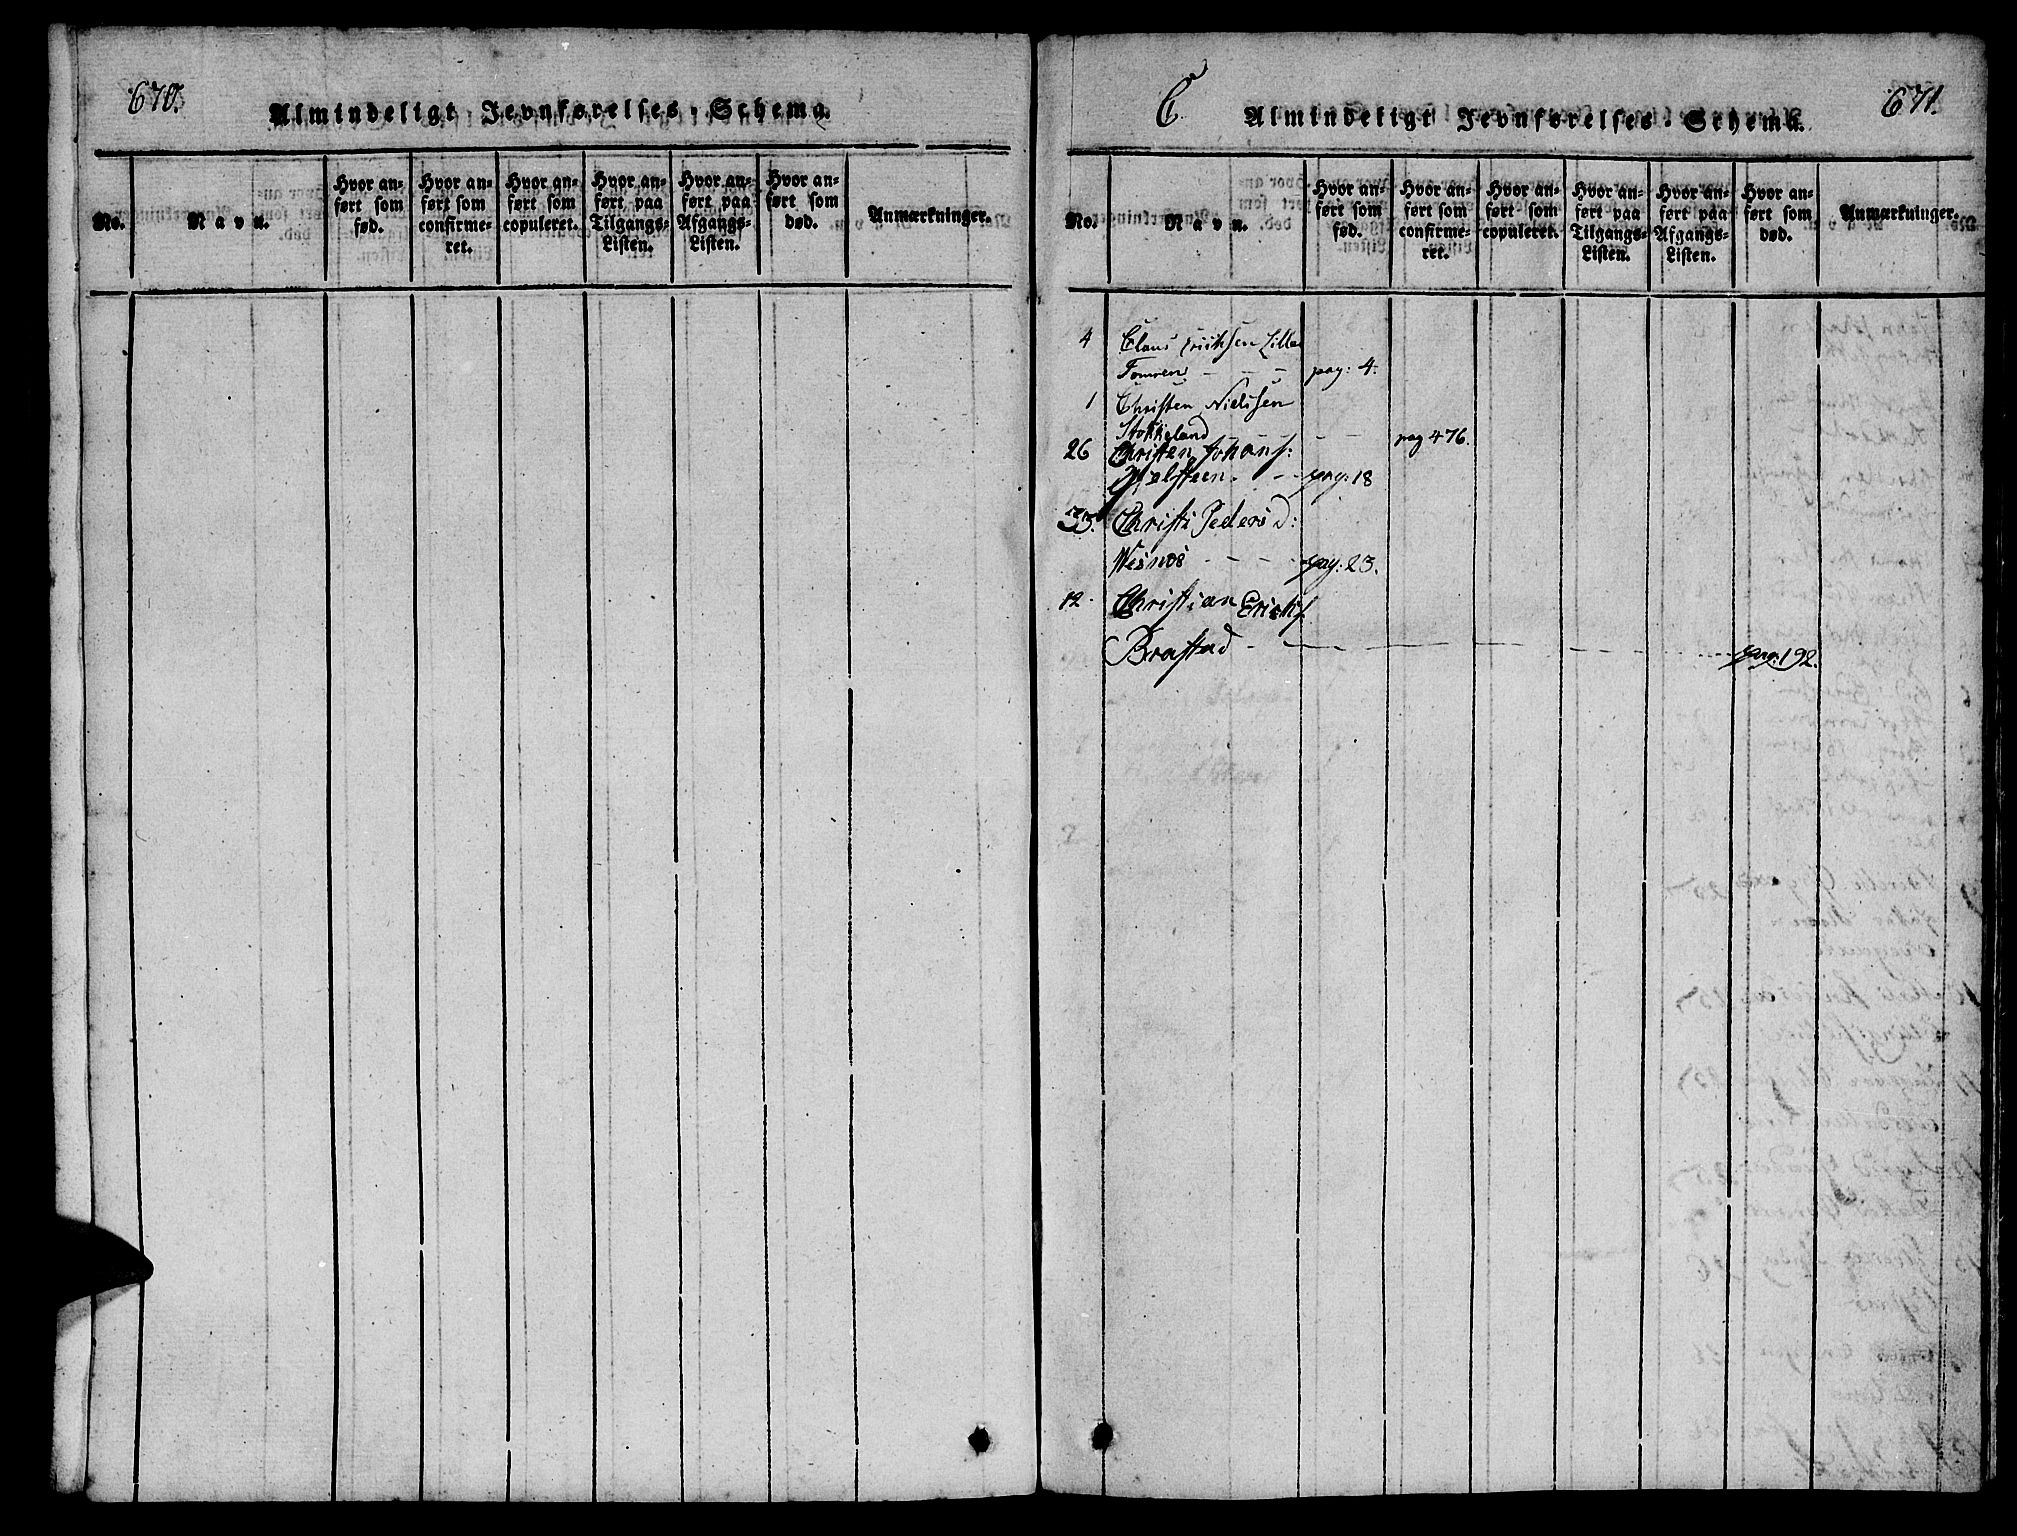 670.
Almindeligt Jevnførelses-Schema.
No.
Navn.
Hvor anført som fød.
Hvor anført som confirmeret.
Hvor anført som copuleret.
Hvor anført paa Tilgangs-Listen.
Hvor anført paa Afgangs-Listen.
Hvor anført som død.
Anmærkninger.
C. Almindeligt Jevnførelses-Schema. 671.
No.
Navn.
Hvor anført som fød.
Hvor anført som confirmeret.
Hvor anført som copuleret.
Hvor anført paa Tilgangs-Listen.
Hvor anført paa Afgangs-Listen.
Hvor anført som død.
Anmærkninger.
4 Claus Eriksen Lille
Tomren - - - pag: 4.
1 Christen Nielsen
Stokkeland - - - pag 476.
26 Christen Johans:
Hielsteen. - - pag: 18
33. Christi Peders D:
Wesnos - - - pag: 23.
12. Christian Erichs.
Brastad - - - pag: 192.